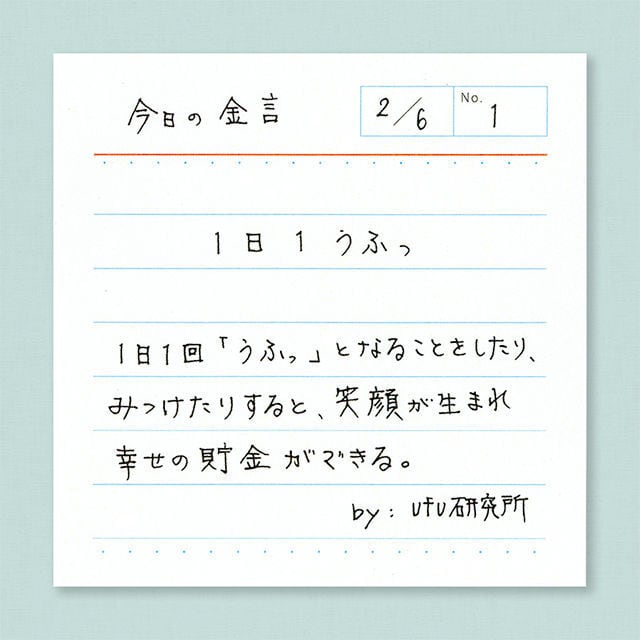 今日の金言
2/6
No. 1
1日1うふっ
1日1回「うふっ」となることをしたり、
みつけたりすると、笑顔が生まれ
幸せの貯金ができる。
by: ufu研究所